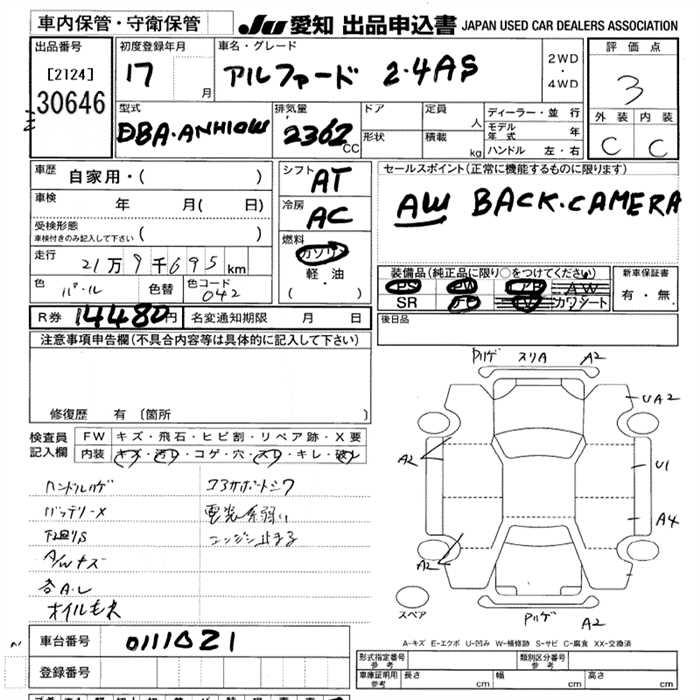 車内保管・守衛保管
JU 愛知 出品申込書 JAPAN USED CAR DEALERS ASSOCIATION
出品番号
[2124]
30646
初度登録年月
17
月
車名・グレード
アルファード 2.4AS
2WD
・
4WD
評価点
3
外装 内装
C C
型式
DBA-ANH10W
排気量
2362
CC
ドア
形状
定員
人
積載
kg
ディーラー・並行
モデル年式 年
ハンドル 左・右
車歴
自家用・( )
車検 年 月( 日)
受検形態
車検付きのみ記入して下さい ( )
走行
21万9千695km
色
パール
色替
色コード
042
シフト
AT
冷房
AC
燃料
ガソリン
軽・油
( ・ )
セールスポイント(正常に機能するものに限ります)
AW BACK.CAMERA
装備品(純正品に限り○をつけてください)
PS PW AB AW
SR TV カワシート
新車保証書
有・無
R券 14480円
名変通知期限 月 日
後日品
注意事項申告欄(不具合内容等は具体的に記入して下さい)
修復歴 有 〔箇所 〕
検査員
記入欄
FW キズ・飛石・ヒビ割・リペア跡・X要
内装 キズ・汚レ・コゲ・穴・スレ・キレ・破レ
ハンドルハゲ
バッテリーX
下廻りS
A/Wキズ
各A.L
オイルモレ
電装系弱い
エンジン止まる
ハゲ スリA A2
UA2
A2
U1
A4
A2
スペア
ハゲ A2
A-キズ E-エクボ U-凹み W-補修跡 S-サビ C-腐食 XX-交換済
車台番号
0111021
登録番号
形式指定番号
参考
類別区分番号
参考
車庫証明用
参考
長さ cm
幅 cm
高さ cm